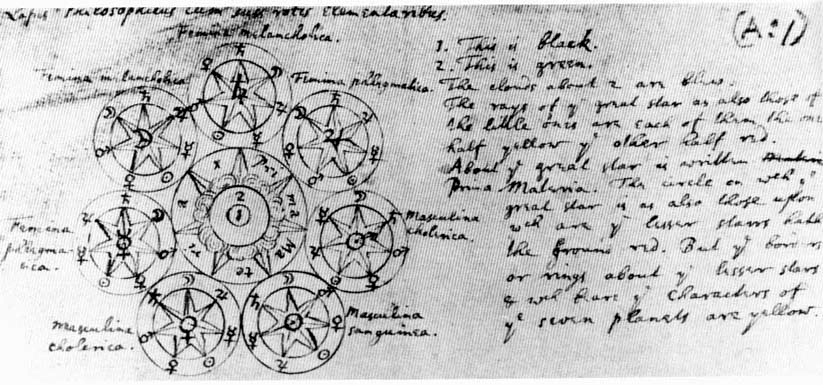 Lapis Philosophicus cum suis rotis elementaribus.
(A:1)
Femina melancholica.
Femina melancholica
Femina phlegmatica.
Femina phlegmatica.
Masculina cholerica.
Masculina cholerica.
Masculina sanguinea.
Pri ma Ma te ri a x
2
1
1. This is black.
2. This is green.
The clouds about 2 are blew.
The rays of yᵉ great star as also those of
the little ones are each of them the one
half yellow yᵉ other half red.
About yᵉ great star is written
Prima Materia. The circle on wᶜʰ yᵉ
great star is as also those upon
wᶜʰ are yᵉ lesser starrs hath
the ground red. But yᵉ borders
or rings about yᵉ lesser stars
& wᶜʰ beare yᵉ characters of
yᵉ seven planets are yellow.